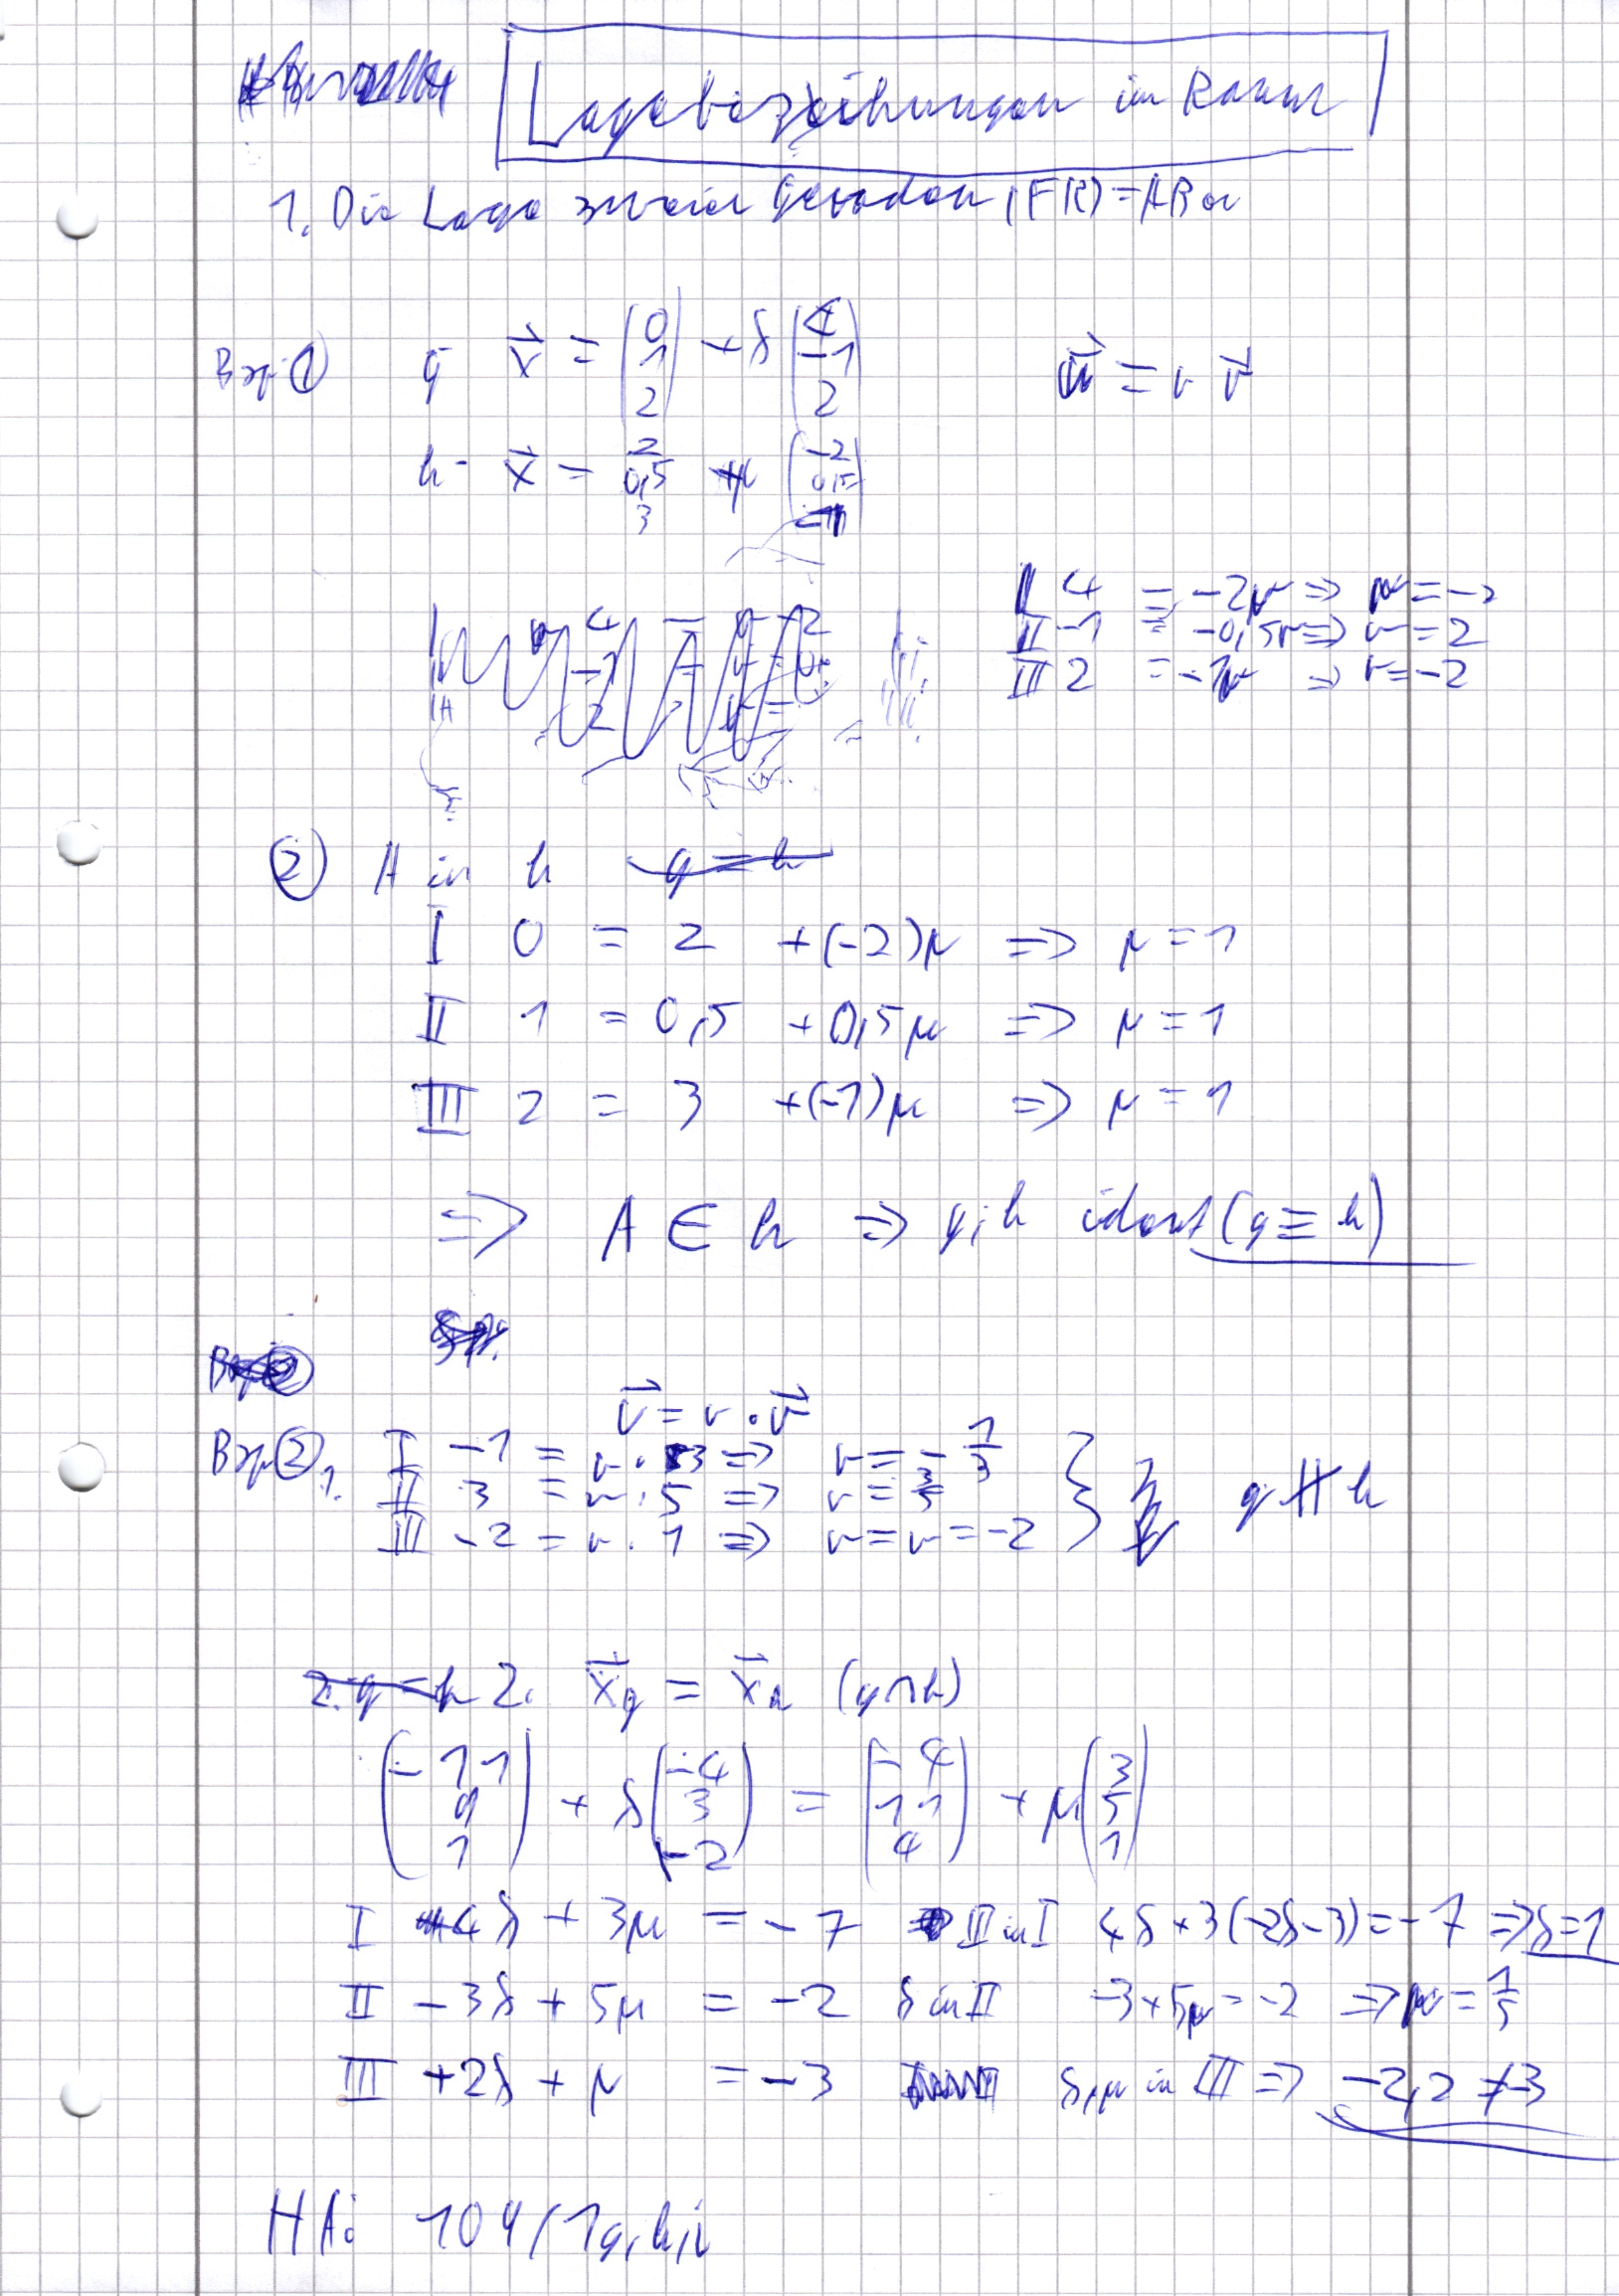 Lagebezeihungen im Raum
1. Die Lage zweier Geraden, FR)=AB
Bsp ① g x⃗ = (0 1 2) + λ (4 -1 2) u⃗ = r v⃗
h: x⃗ = 2 0,5 3 + μ (-2 0,5 -1)
I 4 = -2r => r = -2
II -1 = -0,5r => r = 2
III 2 = -1r => r = -2
② A in h g = h
I 0 = 2 +(-2)μ => μ = 1
II 1 = 0,5 +0,5μ => μ = 1
III 2 = 3 +(-1)μ => μ = 1
=> A ∈ h => g, h ident (g ≡ h)
v⃗ = r · v⃗
Bsp ② 1. I -1 = r · 3 => r = -1/3
II 3 = r · 5 => r = 3/5
III -2 = r · 1 => r = r = -2 } g ∦ h
2. g = h 2. x⃗g = x⃗h (g∩h)
(-11 9 1) + λ (-4 3 -2) = (-4 11 4) + μ (3 5 1)
I 4λ + 3μ = -7 III in I 4λ + 3(-2λ-3) = -7 => λ=1
II -3λ + 5μ = -2 λ in II -3+5μ = -2 => μ = 1/5
III +2λ + μ = -3 λ, μ in III => -2,2 ≠ -3
HA: 104/1g,h,i